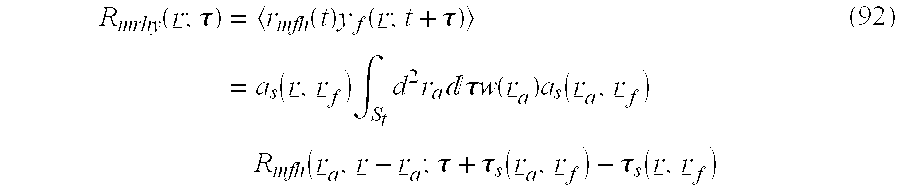 R_{mrhy}(r; τ) = ⟨r_{mfh}(t)y_f(r; t + τ)⟩ (92)
= a_s(r, r_f)∫_{S_t} d²r_a dτw(r_a)a_s(r_a, r_f)
R_{mfh}(r_a, r − r_a; τ + τ_s(r_a, r_f) − τ_s(r, r_f)